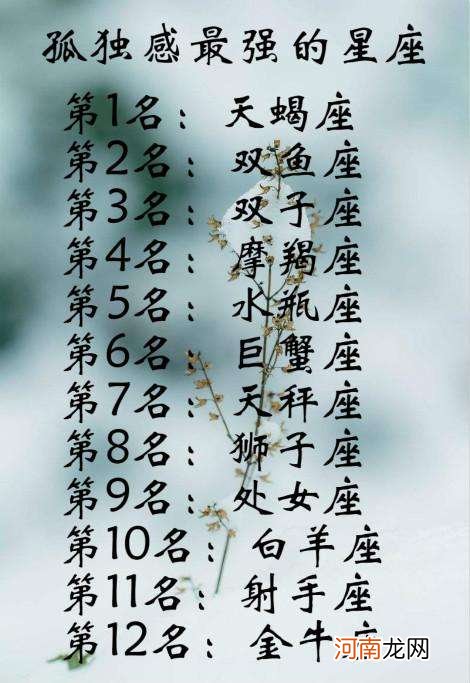 孤独感最强的星座
第1名：天蝎座
第2名：双鱼座
第3名：双子座
第4名：摩羯座
第5名：水瓶座
第6名：巨蟹座
第7名：天秤座
第8名：狮子座
第9名：处女座
第10名：白羊座
第11名：射手座
第12名：金牛座
河南龙网